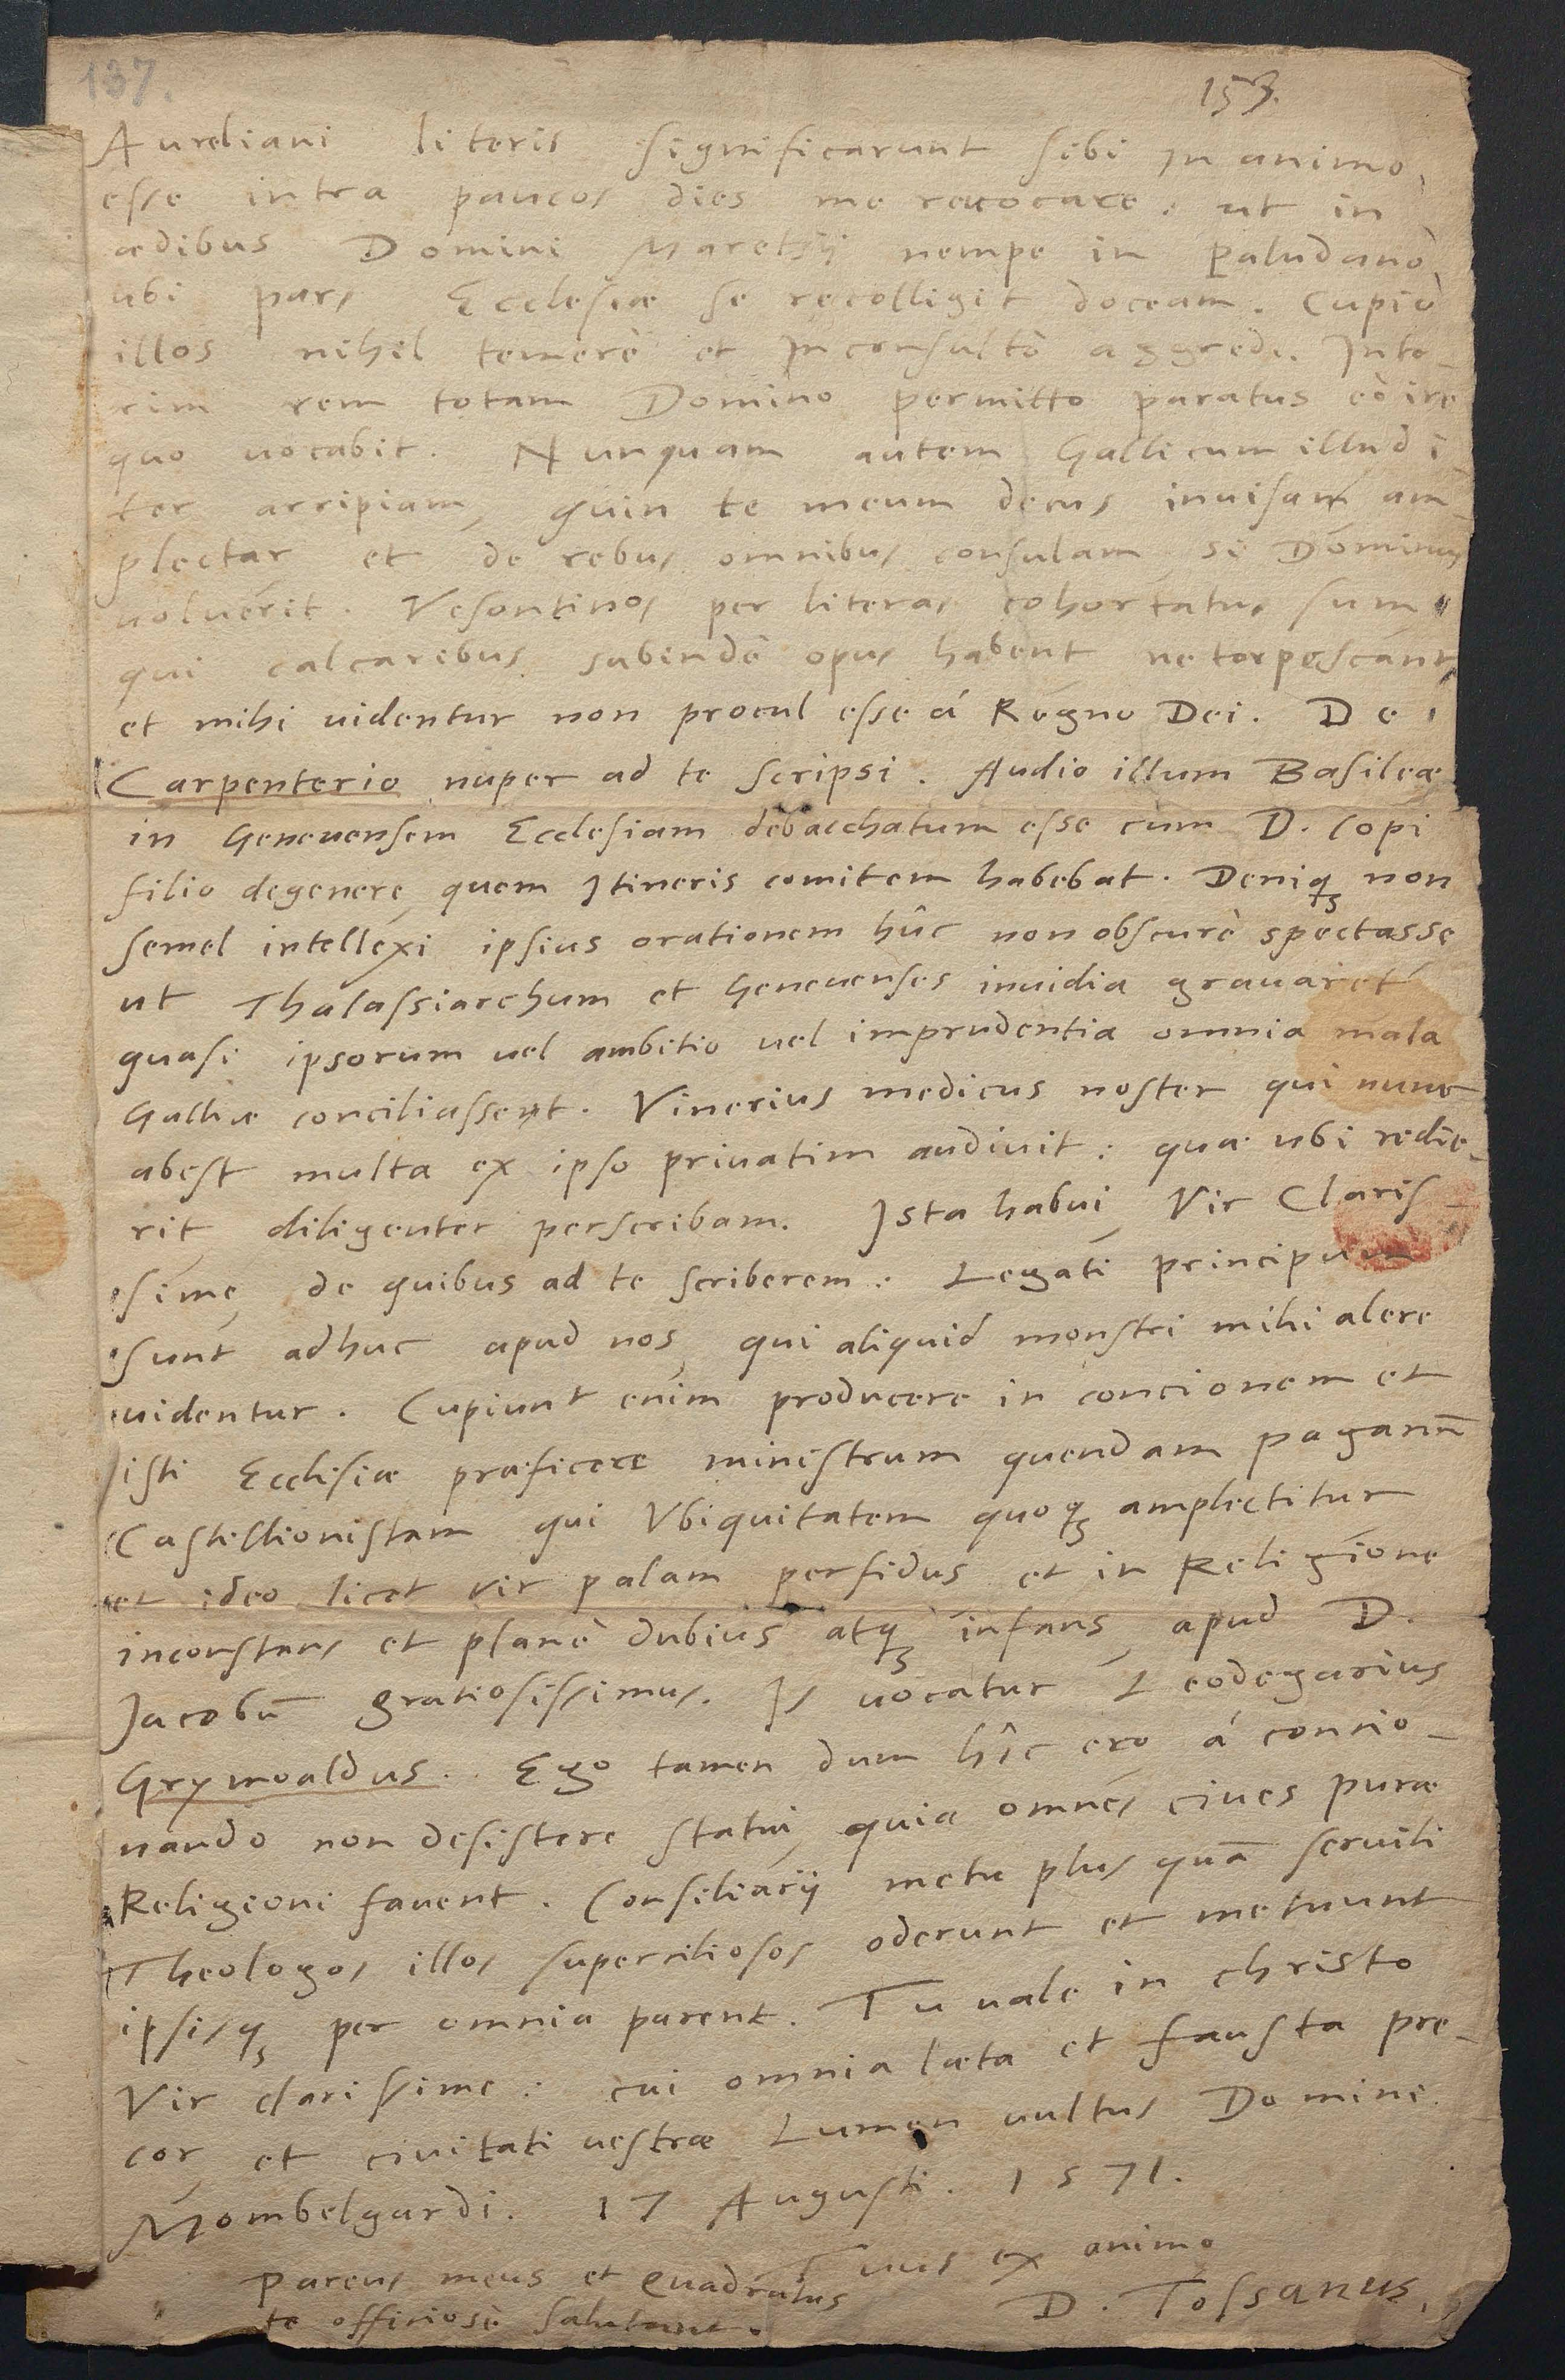 137.
153.
Aureliani literis significarunt sibi in animo
esse intra paucos dies me reuocare, ut in
ædibus Domini Maretsij nempe in Paludano
ubi pars Ecclesiæ se recolligit doceam. Cupio
illos nihil temerè et Inconsultò aggredi. Inte-
rim rem totam Domino permitto paratus eò ire
quo uocabit. Nunquam autem Gallicum illud i-
ter arripiam, quin te meum decus inuisam am-
plectar et de rebus omnibus consulam, si Dominus
uoluerit. Vesontinos per literas cohortatus sum
qui calcaribus subindè opus habent ne torpescant,
et mihi uidentur non procul esse á Regno Dei. De
Carpenterio nuper ad te scripsi. Audio illum Basileæ
in Geneuensem Ecclesiam debacchatum esse cum D. Copi
filio degenere, quem Itineris comitem habebat. Deniqꝫ non
semel intellexi ipsius orationem hûc non obscurè spectasse
ut Thalassiarchum et Geneuenses inuidia grauaret
quasi ipsorum uel ambitio uel imprudentia omnia mala
Galliæ conciliassent. Vinerius medicus noster qui nunc
abest multa ex ipso priuatim audiuit: quæ ubi redie-
rit diligenter perscribam. Ista habui, Vir Claris-
sime, de quibus ad te scriberem. Legati principum
sunt adhuc apud nos, qui aliquid monstri mihi alere
uidentur. Cupiunt enim producere in concionem et
isti Ecclesiæ præficere ministrum quendam paganū
Castellionistam qui Vbiquitatem quoqꝫ amplectitur
et ideo licet vir palam perfidus et in Religione
inconstans et planè dubius atqꝫ infans, apud D.
Jacobū gratiosissimus. Is uocatur Leodegarius
Grymoaldus. Ego tamen dum hîc ero á concio-
nando non desistere statui, quia omnes ciues puræ
Religioni fauent. Consiliarij metu plus quā seruili
Theologos illos superciliosos oderunt et metuunt
ipsisqꝫ per omnia parent. Tu uale in christo
Vir clarissime: cui omnia læta et fausta pre-
cor, et ciuitati uestræ Lumen uultus Domini.
Mombelgardi. 17 Augusti. 1571.
Tuus ex animo
D. Tossanus.
Parens meus et Quadratus
te officiosè salutant.